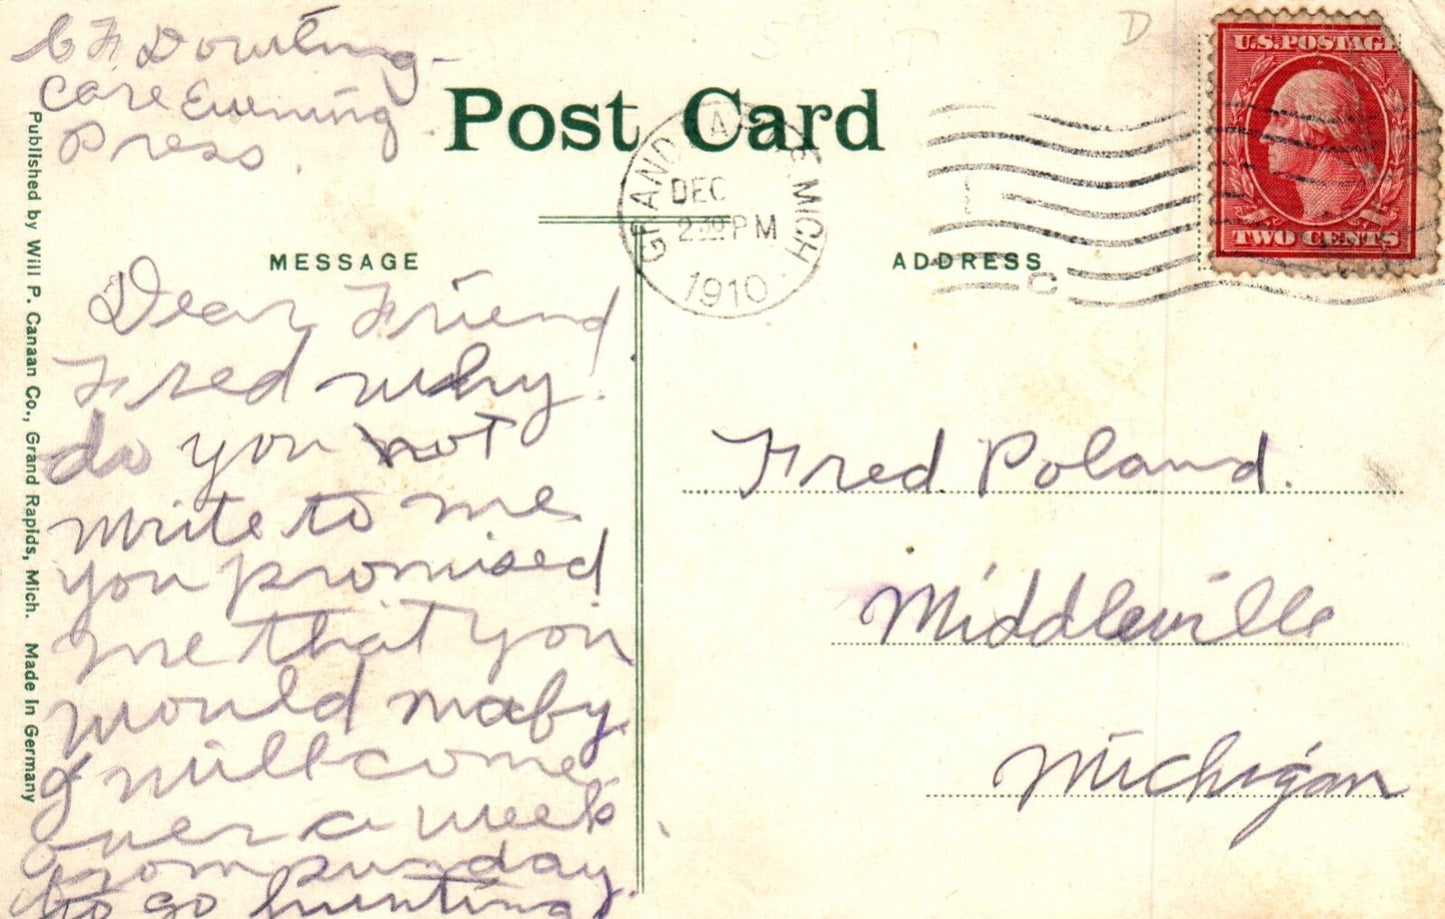 C F Dowling-
Care Evening
Press.
Post Card
U.S. POSTAGE
TWO CENTS
GRAND MICH
DEC
2 30 PM
1910
MESSAGE
ADDRESS
Dear Friend
Fred why.
do you not
write to me
you promised
me that you
would maby
I will come
over a week
from sunday.
to go hunting
Fred Poland.
Middleville
Michigan
Published by Will P. Canaan Co., Grand Rapids, Mich. Made in Germany